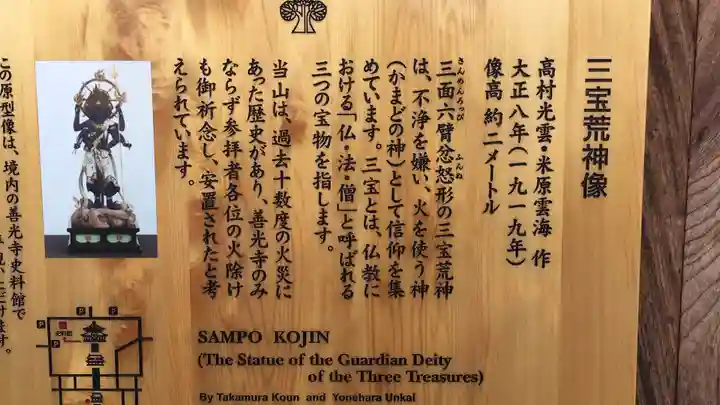 三宝荒神像
高村光雲・米原雲海 作
大正八年(一九一九年)
像高 約二メートル
三面六臂忿怒形の三宝荒神
さんめんろっぴ
ふんぬ
は、不浄を嫌い、火を使う神
(かまどの神)として信仰を集
めています。三宝とは、仏教に
おける「仏・法・僧」と呼ばれる
三つの宝物を指します。
当山は、過去十数度の火災に
あった歴史があり、善光寺のみ
ならず参拝者各位の火除け
も御祈念し、安置されたと考
えられています。
この原型像は、境内の善光寺史料館で
だけます。
P
P
P
P
SAMPO KOJIN
(The Statue of the Guardian Deity
of the Three Treasures)
By Takamura Koun and Yonehara Unkai